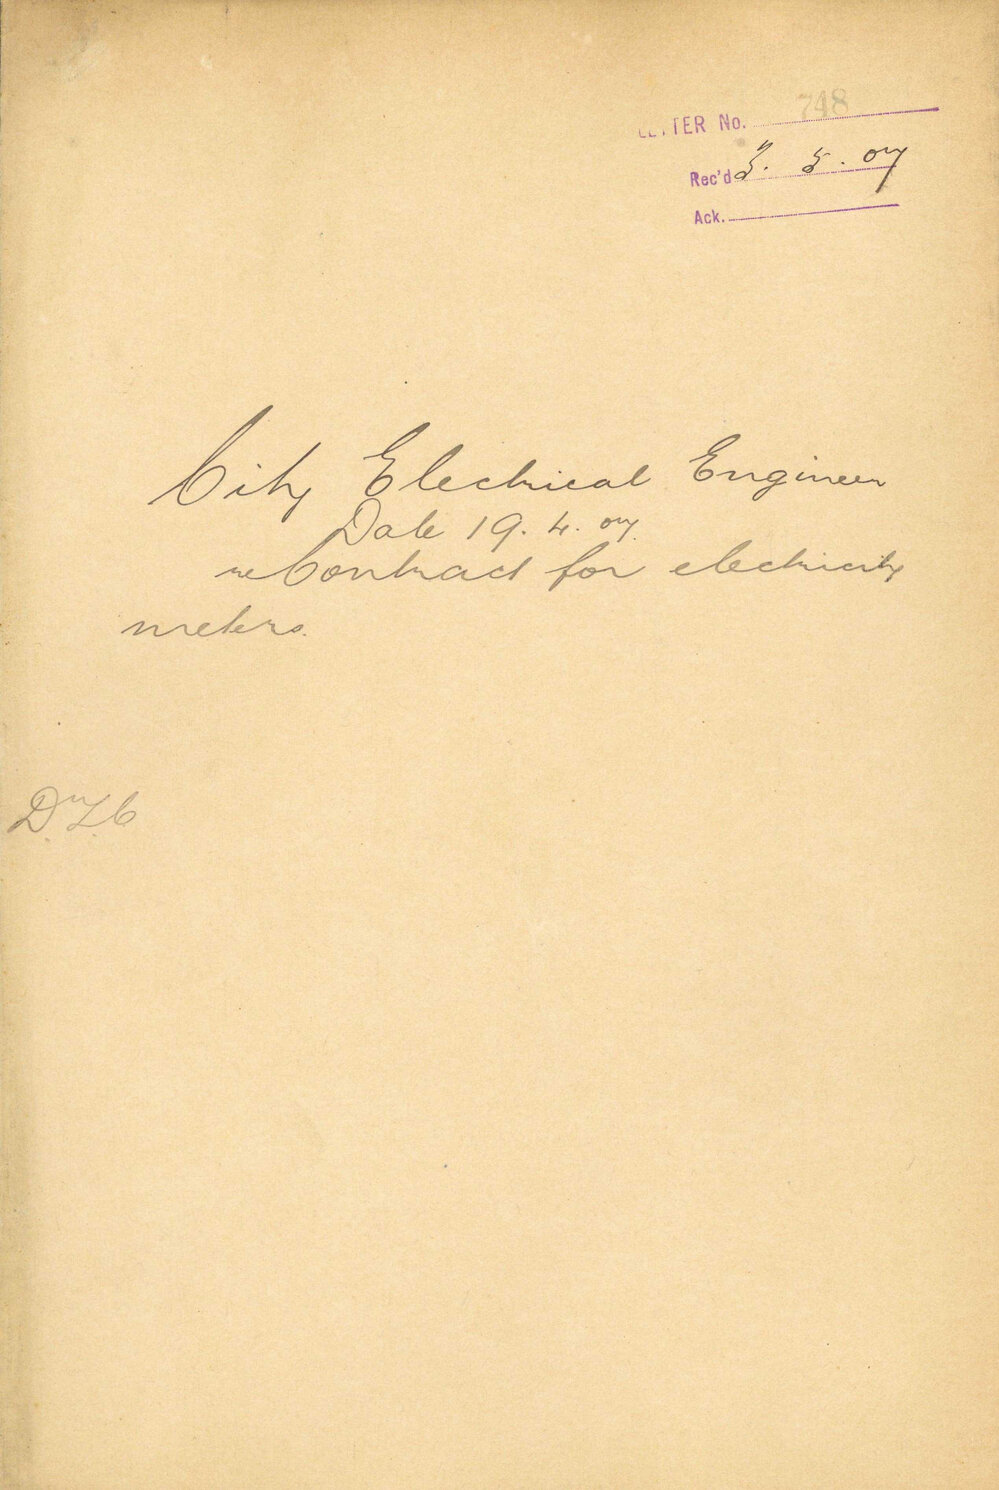 LETTER No. 748
Rec'd 3. 5. 07
Ack.
City Electrical Engineer
Date 19. 4. 07.
re Contract for electricity
meters.